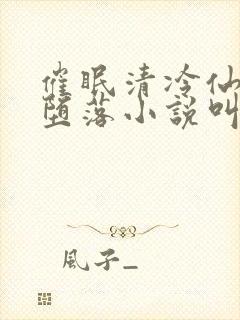 催眠清冷仙
堕落小說叫
風子_